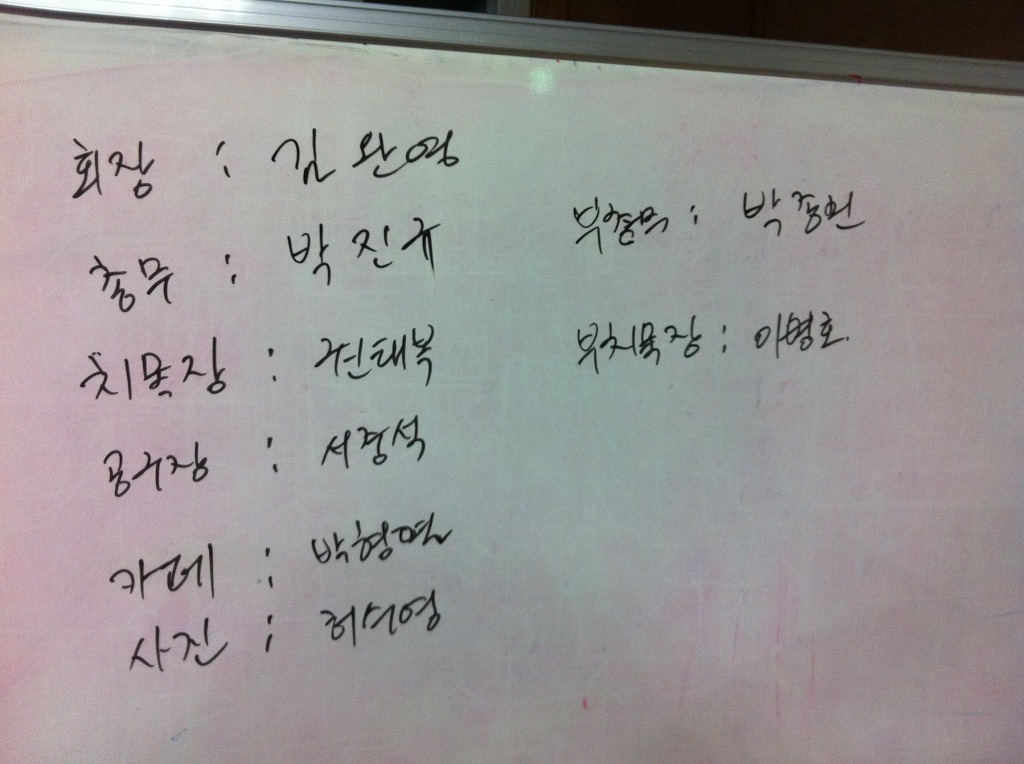 회장 : 김완영
총무 : 박진규
부총무 : 박종헌
치목장 : 권태복
부치목장 : 이병호.
공구장 : 서정석
카페 : 박형열
사진 : 허석영